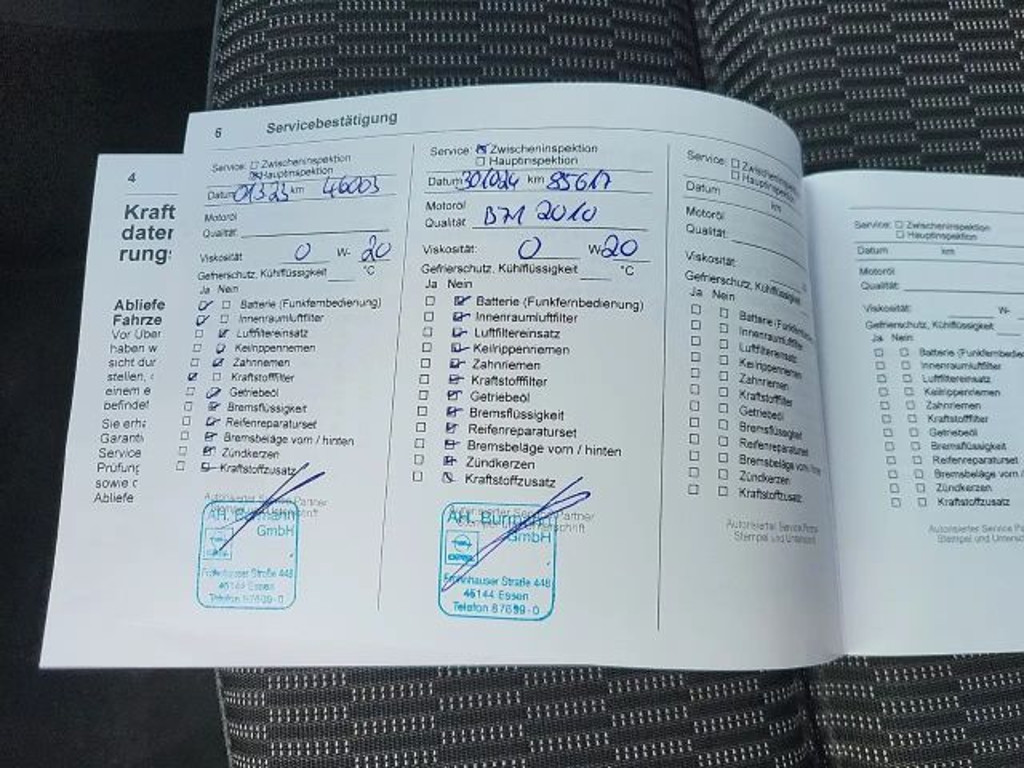 4
Kraft
daten
rung
Abliefe
Fahrze
Vor Über
haben w
sicht dur
stellen,
einem e
befindet
Sie erha
Garanti
Service
Prüfung
sowie
Abliefe
6 Servicebestätigung
Service: Zwischeninspektion
Hauptinspektion
Datum km 46003
Motoröl
Qualität:
Viskosität: 0 W- 20
Gefrierschutz, Kühlflüssigkeit °C
Ja Nein
Batterie (Funkfernbedienung)
Innenraumluftfilter
Luftfiltereinsatz
Keilrippenriemen
Zahnriemen
Kraftstofffilter
Getriebeöl
Bremsflüssigkeit
Reifenreparaturset
Bremsbeläge vorn / hinten
Zündkerzen
Kraftstoffzusatz
GmbH
OPEL
45144 Essen
Telefon 87699-0
Service: Zwischeninspektion
Hauptinspektion
Datum 301024 km 85617
Motoröl
Qualität B71 2010
Viskosität: 0 W 20
Gefrierschutz, Kühlflüssigkeit °C
Ja Nein
Batterie (Funkfernbedienung)
Innenraumluftfilter
Luftfiltereinsatz
Keilrippenriemen
Zahnriemen
Kraftstofffilter
Getriebeöl
Bremsflüssigkeit
Reifenreparaturset
Bremsbeläge vorn / hinten
Zündkerzen
Kraftstoffzusatz
GmbH
OPEL
45144 Essen
Telefon 87699-0
Service: Zwischeninspektion
Hauptinspektion
Datum km
Motoröl
Qualität:
Viskosität:
Gefrierschutz, Kühlflüssigkeit
Ja Nein
Batterie (Funkfernb
Innenraumluftfilter
Luftfiltereinsatz
Keilrippenriemen
Zahnriemen
Kraftstofffilter
Getriebeöl
Bremsflüssigkeit
Reifenreparaturset
Bremsbeläge vorn
Zündkerzen
Kraftstoffzusatz
Autorisierter Service Partn
Stempel und Unterschrift
Service: Zwischeninspektion
Hauptinspektion
Datum km
Motoröl
Qualität:
Viskosität: W-
Gefrierschutz, Kühlflüssigkeit
Ja Nein
Batterie (Funkfernbedie
Innenraumluftfilter
Luftfiltereinsatz
Zahnriemen
Kraftstofffilter
Getriebeöl
Bremsflüssigkeit
Reifenreparaturset
Bremsbeläge vorn /
Zündkerzen
Kraftstoffzusatz
Autorisierter Service Pa
Stempel und Untersch